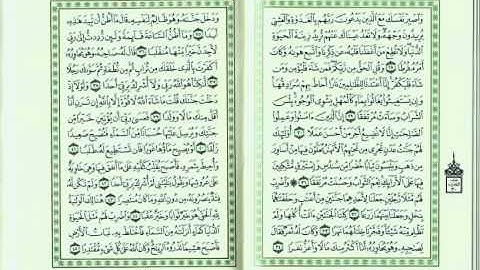 وَٱصۡبِرۡ نَفۡسَكَ مَعَ ٱلَّذِينَ يَدۡعُونَ رَبَّهُم بِٱلۡغَدَوٰةِ وَٱلۡعَشِيِّ
يُرِيدُونَ وَجۡهَهُۥۖ وَلَا تَعۡدُ عَيۡنَاكَ عَنۡهُمۡ تُرِيدُ زِينَةَ ٱلۡحَيَوٰةِ
ٱلدُّنۡيَاۖ وَلَا تُطِعۡ مَنۡ أَغۡفَلۡنَا قَلۡبَهُۥ عَن ذِكۡرِنَا وَٱتَّبَعَ هَوَىٰهُ وَكَانَ
أَمۡرُهُۥ فُرُطٗا ٢٨ وَقُلِ ٱلۡحَقُّ مِن رَّبِّكُمۡۖ فَمَن شَآءَ فَلۡيُؤۡمِن وَمَن
شَآءَ فَلۡيَكۡفُرۡۚ إِنَّآ أَعۡتَدۡنَا لِلظَّٰلِمِينَ نَارًا أَحَاطَ بِهِمۡ سُرَادِقُهَاۚ
وَإِن يَسۡتَغِيثُواْ يُغَاثُواْ بِمَآءٖ كَٱلۡمُهۡلِ يَشۡوِي ٱلۡوُجُوهَۚ بِئۡسَ
ٱلشَّرَابُ وَسَآءَتۡ مُرۡتَفَقًا ٢٩ إِنَّ ٱلَّذِينَ ءَامَنُواْ وَعَمِلُواْ
ٱلصَّٰلِحَٰتِ إِنَّا لَا نُضِيعُ أَجۡرَ مَنۡ أَحۡسَنَ عَمَلًا ٣٠ أُوْلَٰٓئِكَ
لَهُمۡ جَنَّٰتُ عَدۡنٖ تَجۡرِي مِن تَحۡتِهِمُ ٱلۡأَنۡهَٰرُ يُحَلَّوۡنَ فِيهَا مِنۡ أَسَاوِرَ
مِن ذَهَبٖ وَيَلۡبَسُونَ ثِيَابًا خُضۡرٗا مِّن سُندُسٖ وَإِسۡتَبۡرَقٖ مُّتَّكِـِٔينَ
فِيهَا عَلَى ٱلۡأَرَآئِكِۚ نِعۡمَ ٱلثَّوَابُ وَحَسُنَتۡ مُرۡتَفَقٗا ٣١ وَٱضۡرِبۡ
لَهُم مَّثَلٗا رَّجُلَيۡنِ جَعَلۡنَا لِأَحَدِهِمَا جَنَّتَيۡنِ مِنۡ أَعۡنَٰبٖ وَحَفَفۡنَٰهُمَا
بِنَخۡلٖ وَجَعَلۡنَا بَيۡنَهُمَا زَرۡعٗا ٣٢ كِلۡتَا ٱلۡجَنَّتَيۡنِ ءَاتَتۡ أُكُلَهَا وَلَمۡ
تَظۡلِم مِّنۡهُ شَيۡـٔٗاۚ وَفَجَّرۡنَا خِلَٰلَهُمَا نَهَرٗا ٣٣ وَكَانَ لَهُۥ ثَمَرٞ فَقَالَ
لِصَٰحِبِهِۦ وَهُوَ يُحَاوِرُهُۥٓ أَنَا۠ أَكۡثَرُ مِنكَ مَالٗا وَأَعَزُّ نَفَرٗا ٣٤
وَدَخَلَ جَنَّتَهُۥ وَهُوَ ظَالِمٞ لِّنَفۡسِهِۦ قَالَ مَآ أَظُنُّ أَن تَبِيدَ هَٰذِهِۦٓ
أَبَدٗا ٣٥ وَمَآ أَظُنُّ ٱلسَّاعَةَ قَآئِمَةٗ وَلَئِن رُّدِدتُّ إِلَىٰ رَبِّي
لَأَجِدَنَّ خَيۡرٗا مِّنۡهَا مُنقَلَبٗا ٣٦ قَالَ لَهُۥ صَاحِبُهُۥ وَهُوَ يُحَاوِرُهُۥٓ
أَكَفَرۡتَ بِٱلَّذِي خَلَقَكَ مِن تُرَابٖ ثُمَّ مِن نُّطۡفَةٖ ثُمَّ سَوَّىٰكَ رَجُلٗا
٣٧ لَّٰكِنَّا۠ هُوَ ٱللَّهُ رَبِّي وَلَآ أُشۡرِكُ بِرَبِّيٓ أَحَدٗا ٣٨ وَلَوۡلَآ إِذۡ
دَخَلۡتَ جَنَّتَكَ قُلۡتَ مَا شَآءَ ٱللَّهُ لَا قُوَّةَ إِلَّا بِٱللَّهِۚ إِن تَرَنِ أَنَا۠
أَقَلَّ مِنكَ مَالٗا وَوَلَدٗا ٣٩ فَعَسَىٰ رَبِّيٓ أَن يُؤۡتِيَنِ خَيۡرٗا مِّن
جَنَّتِكَ وَيُرۡسِلَ عَلَيۡهَا حُسۡبَانٗا مِّنَ ٱلسَّمَآءِ فَتُصۡبِحَ صَعِيدٗا
زَلَقًا ٤٠ أَوۡ يُصۡبِحَ مَآؤُهَا غَوۡرٗا فَلَن تَسۡتَطِيعَ لَهُۥ طَلَبٗا ٤١
وَأُحِيطَ بِثَمَرِهِۦ فَأَصۡبَحَ يُقَلِّبُ كَفَّيۡهِ عَلَىٰ مَآ أَنفَقَ فِيهَا وَهِيَ خَاوِيَةٌ
عَلَىٰ عُرُوشِهَا وَيَقُولُ يَٰلَيۡتَنِي لَمۡ أُشۡرِكۡ بِرَبِّيٓ أَحَدٗا ٤٢ وَلَمۡ تَكُن لَّهُۥ
فِئَةٞ يَنصُرُونَهُۥ مِن دُونِ ٱللَّهِ وَمَا كَانَ مُنتَصِرًا ٤٣ هُنَالِكَ ٱلۡوَلَٰيَةُ
لِلَّهِ ٱلۡحَقِّۚ هُوَ خَيۡرٞ ثَوَابٗا وَخَيۡرٌ عُقۡبٗا ٤٤ وَٱضۡرِبۡ لَهُم مَّثَلَ ٱلۡحَيَوٰةِ
ٱلدُّنۡيَا كَمَآءٍ أَنزَلۡنَٰهُ مِنَ ٱلسَّمَآءِ فَٱخۡتَلَطَ بِهِۦ نَبَاتُ ٱلۡأَرۡضِ
فَأَصۡبَحَ هَشِيمٗا تَذۡرُوهُ ٱلرِّيَٰحُۗ وَكَانَ ٱللَّهُ عَلَىٰ كُلِّ شَيۡءٖ مُّقۡتَدِرًا ٤٥